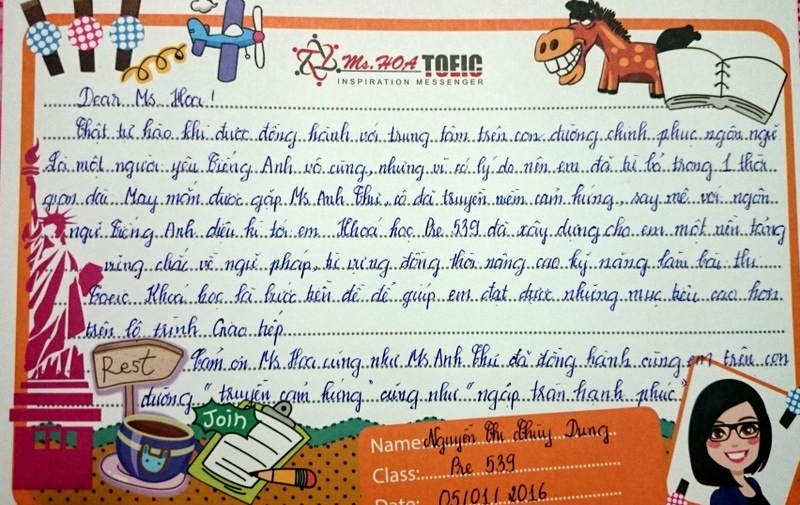 Ms. HOA TOEIC
INSPIRATION MESSENGER
Dear Ms. Hoa!
Thật tự hào khi được đồng hành với trung tâm trên con đường chinh phục ngôn ngữ
Là một người yêu Tiếng Anh vô cùng, nhưng vì có lý do nên em đã từ bỏ trong 1 thời
gian dài. May mắn được gặp Ms. Anh Thư, cô đã truyền niềm cảm hứng, say mê với ngôn
ngữ Tiếng Anh diệu kì tới em. Khoá học Pre 539 đã xây dựng cho em một nền tảng
vững chắc về ngữ pháp, từ vựng đồng thời nâng cao kỹ năng làm bài thi
Toeic. Khoá học là bước tiền đề để giúp em đạt được những mục tiêu cao hơn
trên lộ trình Giao tiếp.
Cảm ơn Ms. Hoa cũng như Ms. Anh Thư đã đồng hành cùng em trên con
đường "truyền cảm hứng" cũng như "ngập tràn hạnh phúc."
Rest
Join
Name: Nguyễn Thị Thùy Dung.
Class: Pre 539
Date: 05/01/2016